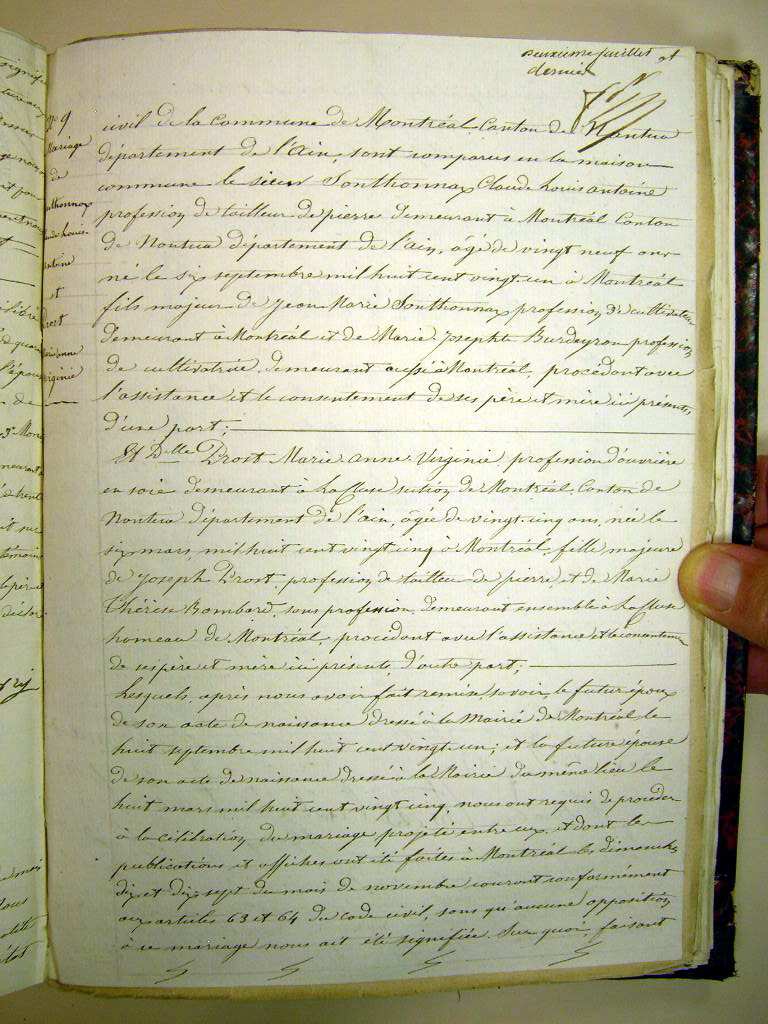 deuxième feuillet et
dernier
N° 9
Mariage
de
Southonnax
Claude Louis
Antoine
et
Prost
Marie Anne
Virginie
civil de la Commune de Montréal, Canton de Nantua
département de l'ain, sont comparus en la maison
commune le sieur Southonnax Claude Louis antoine
profession de tailleur de pierre demeurant à Montréal Canton
de Nantua département de l'ain, âgé de vingt neuf ans
né le six septembre mil huit cent vingt un à Montréal
fils majeur de Jean Marie Southonnax profession de cultivateur
demeurant à Montréal et de Marie Josephte Burdeyron profession
de cultivatrice, demeurant aussi à Montréal, procédant avec
l'assistance et le consentement de ses père et mère ici présents,
d'une part;
Et Dlle Prost Marie anne Virginie, profession d'ouvrière
en soie demeurant à La Cluse section de Montréal, Canton de
Nantua département de l'ain, âgée de vingt cinq ans, née le
six mars, mil huit cent vingt cinq à Montréal, fille majeure
de Joseph Prost, profession de tailleur de pierre, et de Marie
Thérèse Bombard, sans profession, demeurant ensemble à La Cluse
hameau de Montréal, procédant avec l'assistance et le consentement
de ses père et mère ici présents, d'autre part;
Lesquels, après nous avoir fait remise, savoir, le futur époux
de son acte de naissance dressé à la Mairie de Montréal le
huit septembre mil huit cent vingt un; et la future épouse
de son acte de naissance dressé à la Mairie du même lieu le
huit mars mil huit cent vingt cinq, nous ont requis de procéder
à la célébration du mariage projeté entre eux, et dont les
publications et affiches ont été faites à Montréal les dimanches
dix et dix sept du mois de novembre courant conformément
aux articles 63 et 64 du Code civil, sans qu'aucune opposition
à ce mariage nous ait été signifiée. Sur quoi, faisant